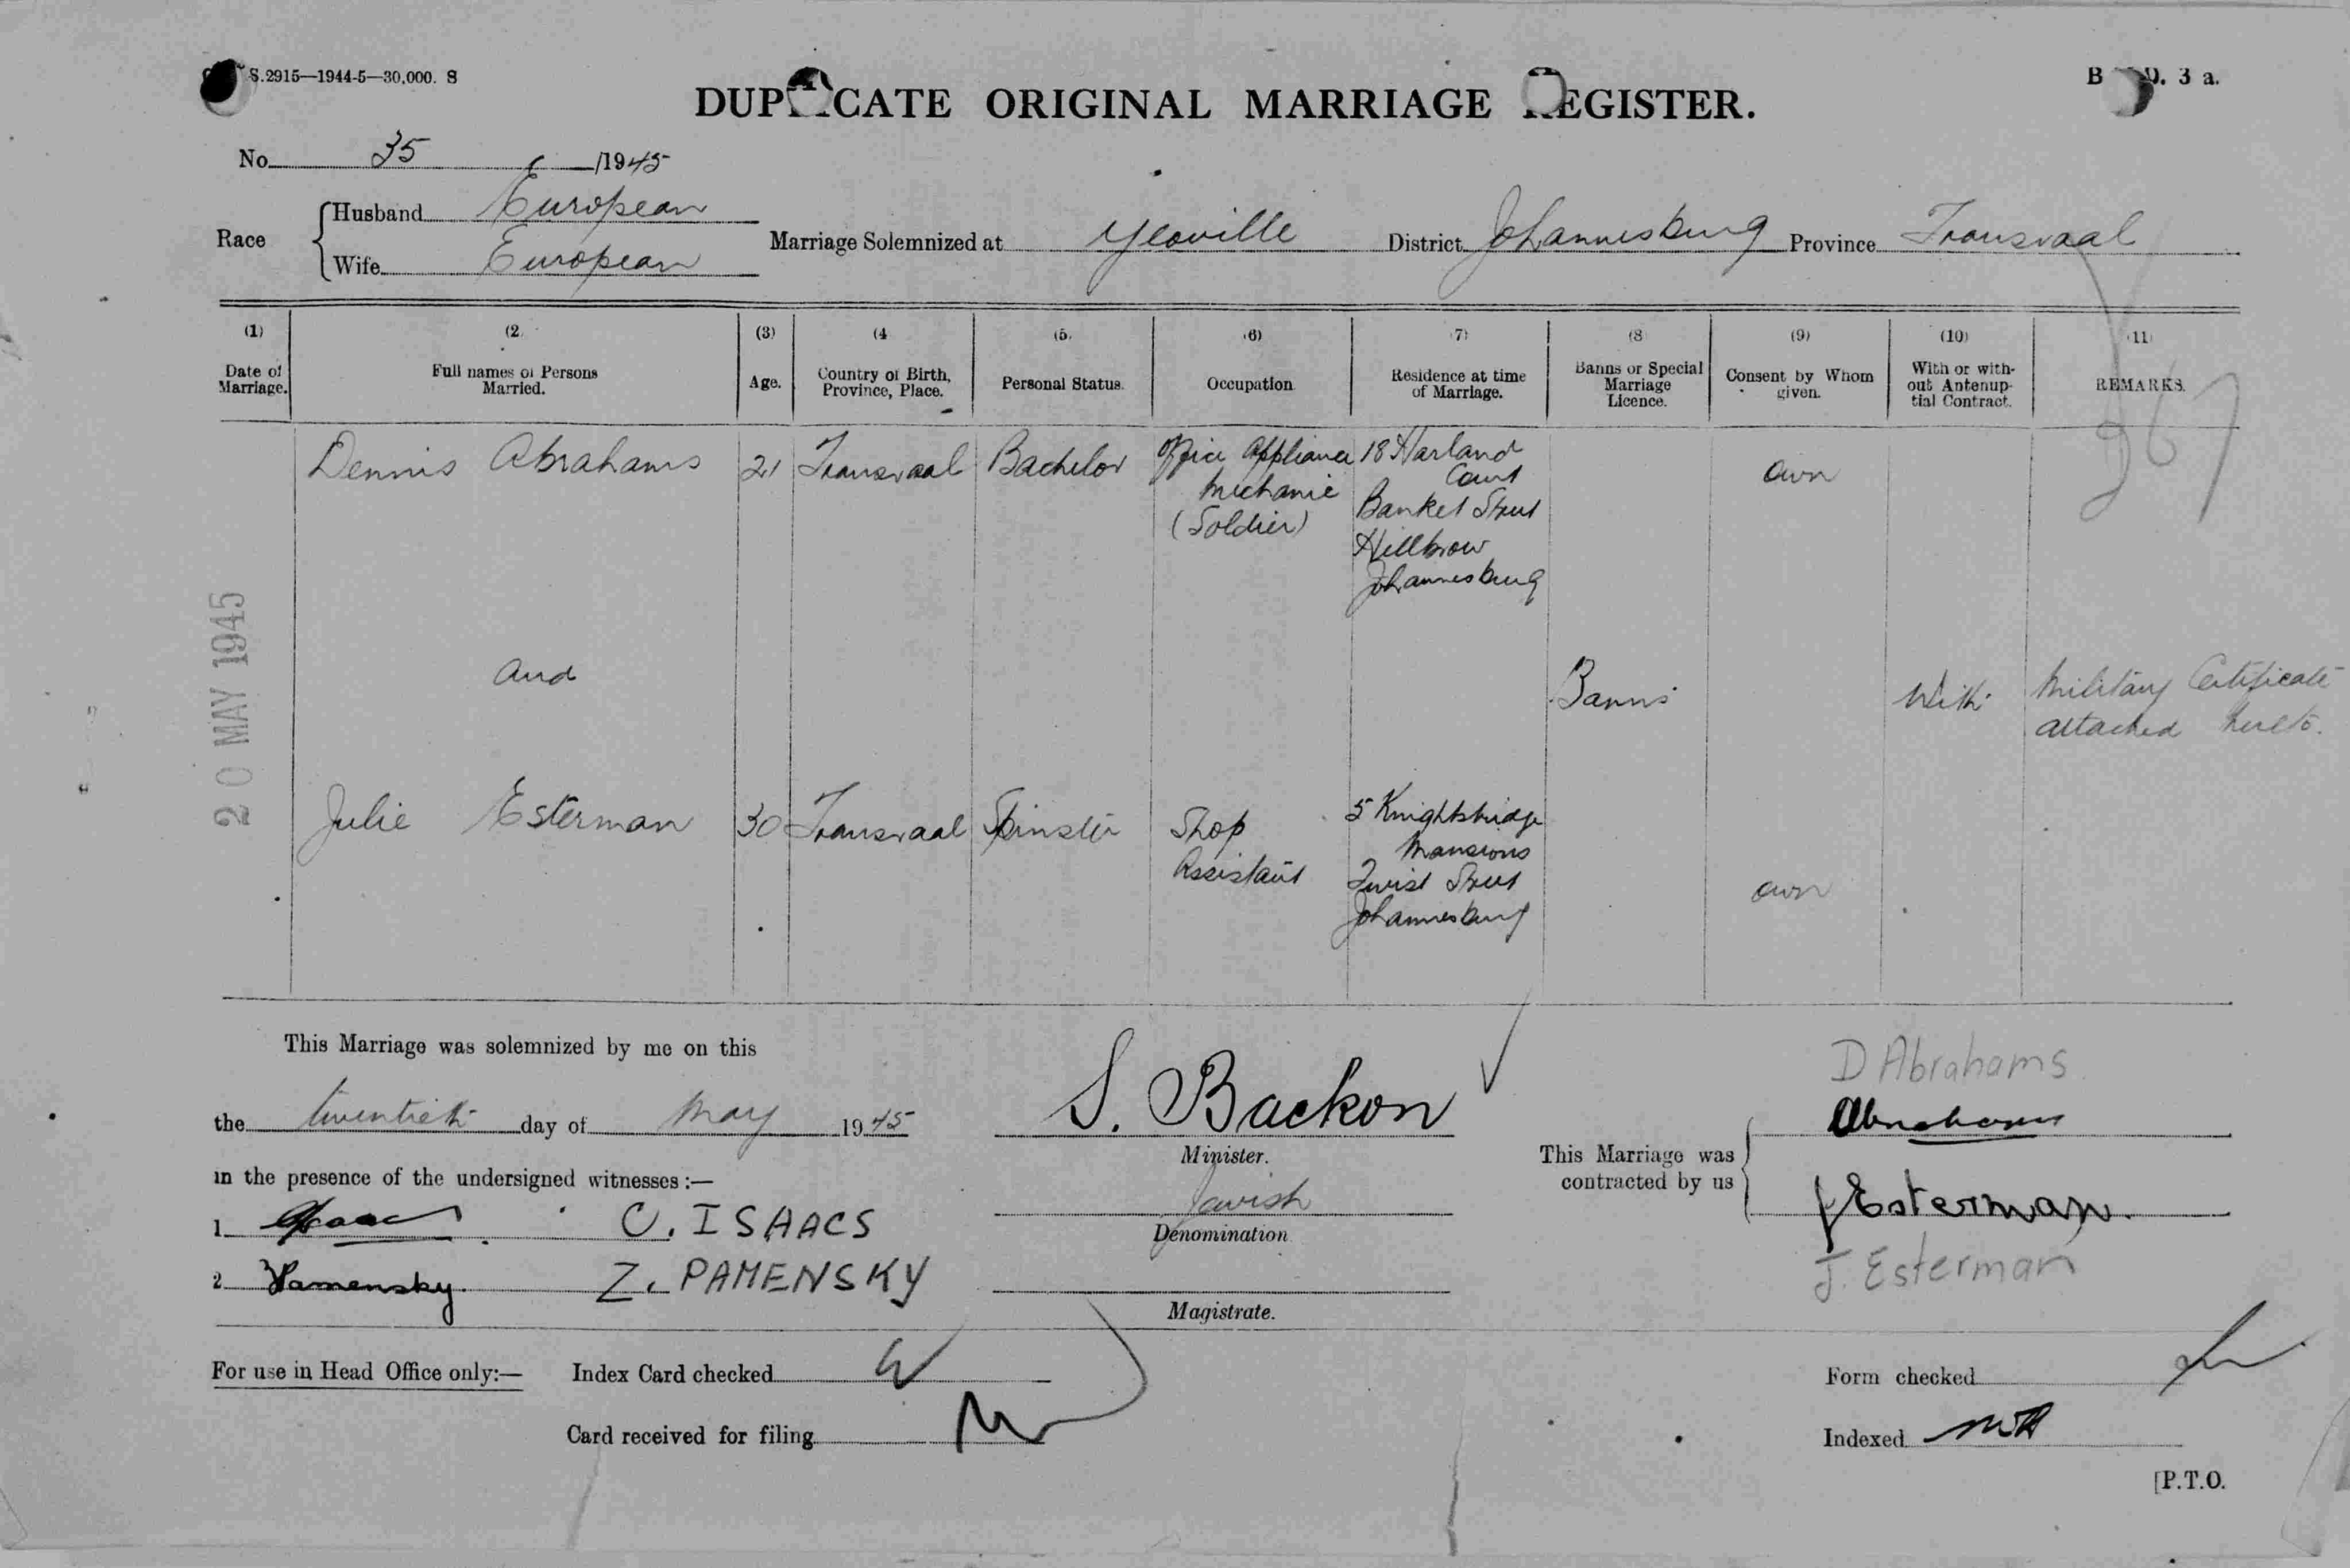 S.2915—1944-5—30,000. S
B D. 3 a.
DUPLICATE ORIGINAL MARRIAGE REGISTER.
No. 35 /1945
Race
Husband European
Wife European
Marriage Solemnized at Yeoville District Johannesburg Province Transvaal
(1) (2) (3) (4 (5. (6) (7) (8 (9) (10) (11)
Date of Marriage.
Full names of Persons Married.
Age.
Country of Birth, Province, Place.
Personal Status.
Occupation.
Residence at time of Marriage.
Banns or Special Marriage Licence.
Consent by Whom given.
With or without Antenuptial Contract.
REMARKS.
20 MAY 1945
Dennis Abrahams 21 Transvaal Bachelor
Office Appliance
Mechanic
(Soldier)
18 Harland
Court
Banket Street
Hillbrow
Johannesburg
own
and
Banns
With
Military Certificate
attached hereto.
Julie Esterman 30 Transvaal Spinster
Shop
Assistant
5 Knightsbridge
Mansions
Twist Street
Johannesburg
own
This Marriage was solemnized by me on this
the twentieth day of May 1945
in the presence of the undersigned witnesses:—
1. Isaacs C. ISAACS
2 Pamensky Z. PAMENSKY
S. Backon
Minister.
Jewish
Denomination
Magistrate.
This Marriage was
contracted by us
D Abrahams
Abrahams
J Esterman.
J. Esterman
For use in Head Office only:—
Index Card checked
Card received for filing
Form checked
Indexed
[P.T.O.